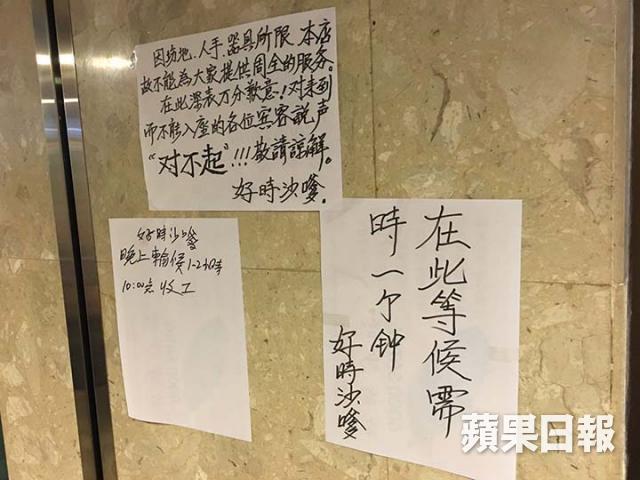 因场地、人手、器具所限 本店
故不能為大家提供周全的服务。
在此深表万分歉意！对来到
而不能入座的各位宾客說声
“对不起”!!! 敬請諒解。
好時沙嗲.
好時沙嗲
晚上輪候1-2小時
10:00点收工
在此等候需
時一个钟
好時沙嗲
蘋果日報